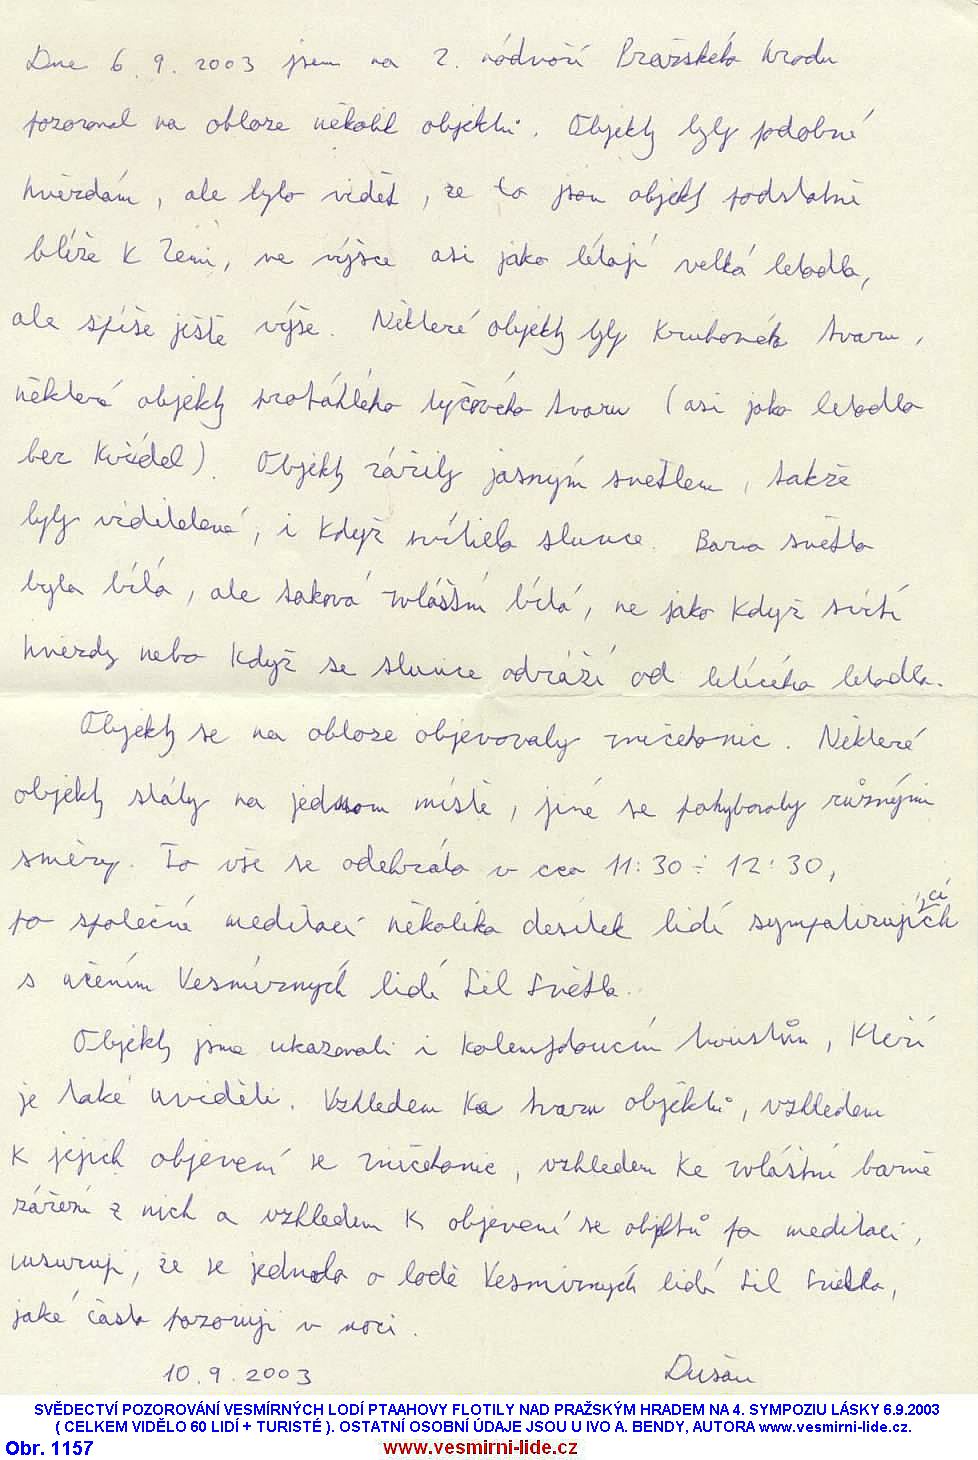 Dne 6. 9. 2003 jsem na 2. nádvoří Pražského hradu
pozoroval na obloze několik objektů. Objekty byly podobné
hvězdám, ale bylo vidět, že to jsou objekty podstatně
blíže k Zemi, ve výšce asi jako létají velká letadla,
ale spíše ještě výše. Některé objekty byly kruhového tvaru,
některé objekty protáhlého tyčového tvaru (asi jako letadla
bez křídel). Objekty zářily jasným světlem, takže
byly viditelné, i když svítilo slunce. Barva světla
byla bílá, ale taková zvláštní bílá, ne jako když svítí
hvězdy nebo když se slunce odráží od letícího letadla.
Objekty se na obloze objevovaly zničehonic. Některé
objekty stály na jednom místě, jiné se pohybovaly různými
směry. To vše se odehrálo v cca 11:30 ÷ 12:30,
po společné meditaci několika desítek lidí sympatizujících
s učením Vesmírných lidí Sil Světla.
Objekty jsme ukazovali i kolemjdoucím turistům, kteří
je také uviděli. Vzhledem ke tvaru objektů, vzhledem
k jejich objevení se zničehonic, vzhledem ke zvláštní barvě
záření z nich a vzhledem k objevení se objektů po meditaci,
usuzuji, že se jednalo o lodě Vesmírných lidí Sil Světla,
jaké často pozoruji v noci.
10. 9. 2003 Dušan
SVĚDECTVÍ POZOROVÁNÍ VESMÍRNÝCH LODÍ PTAAHOVY FLOTILY NAD PRAŽSKÝM HRADEM NA 4. SYMPOZIU LÁSKY 6.9.2003
( CELKEM VIDĚLO 60 LIDÍ + TURISTÉ ). OSTATNÍ OSOBNÍ ÚDAJE JSOU U IVO A. BENDY, AUTORA www.vesmirni-lide.cz.
Obr. 1157 www.vesmirni-lide.cz